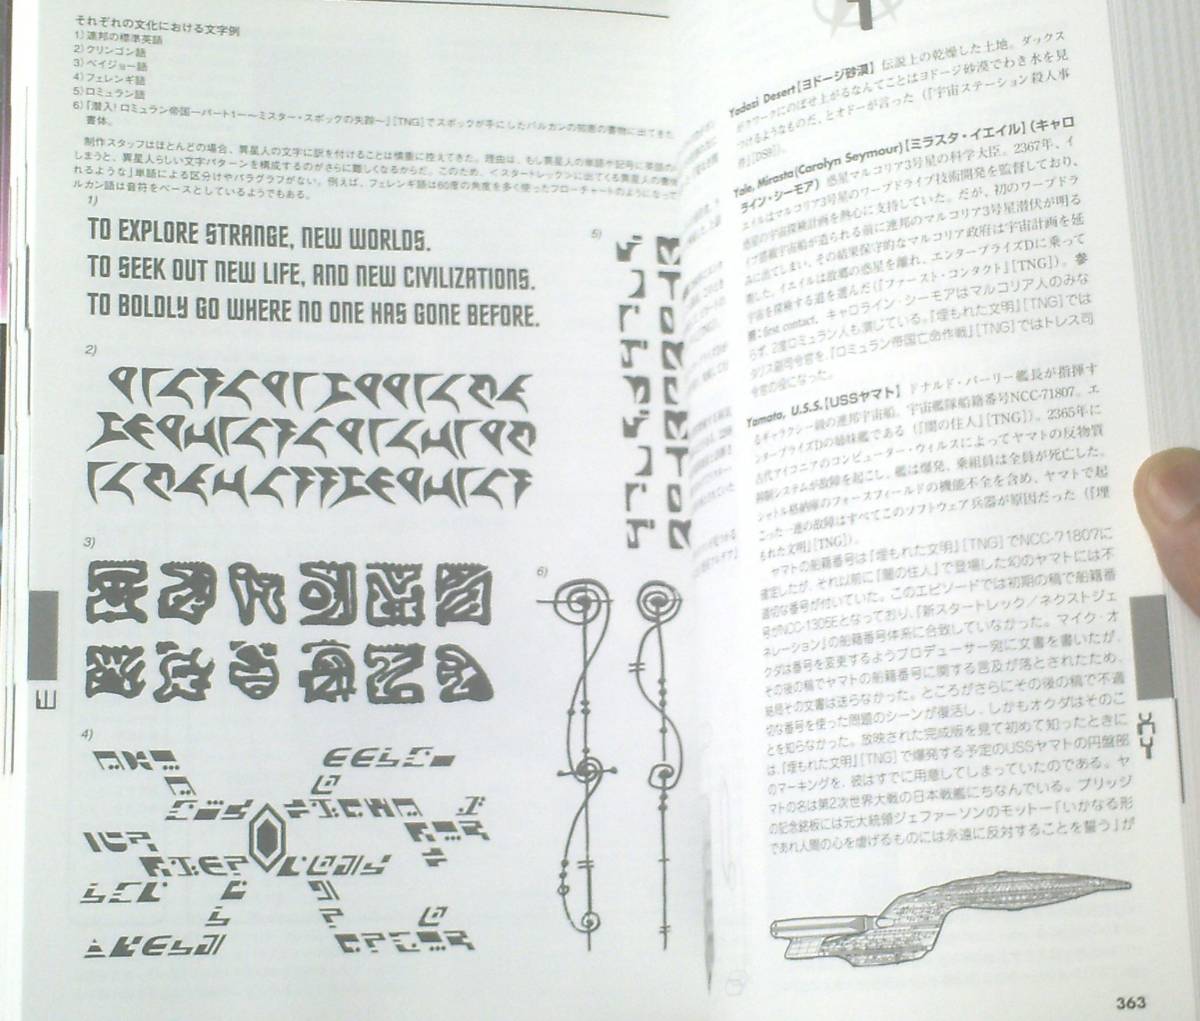 それぞれの文化における文字例
1)連邦の標準英語
2)クリンゴン語
3)ベイジョー語
4)フェレンギ語
5)ロミュラン語
6)「潜入!ロミュラン帝国―パート1――ミスター・スポックの失踪―」[TNG]でスポックが手にしたバルカンの知恵の書物に出てきた
書体。
制作スタッフはほとんどの場合、異星人の文字に訳を付けることは慎重に控えてきた。理由は、もし異星人の単語や記号に英語の
しまうと、異星人らしい文字パターンを構成するのがさらに難しくなるからだ。このため、<スタートレック>に出てくる異星人の書体
れるような」単語による区分けやパラグラフがない。例えば、フェレンギ語は60度の角度を多く使ったフローチャートのようになって
ルカン語は音符をベースとしているようでもある。
1)
TO EXPLORE STRANGE, NEW WORLDS.
TO SEEK OUT NEW LIFE, AND NEW CIVILIZATIONS.
TO BOLDLY GO WHERE NO ONE HAS GONE BEFORE.
2)
3)
4)
5)
6)
Yadozi Desert【ヨドージ砂漠】 伝説上の乾燥した土地。ダックス
がクワークにのぼせ上がるなんてことはヨドージ砂漠でわき水を見
つけるようなものだ、とオドーが言った(『宇宙ステーション殺人事
件』[DS9])。
Yale, Mirasta(Carolyn Seymour)【ミラスタ・イエイル】(キャロ
ライン・シーモア) 惑星マルコリア3号星の科学大臣。2367年、イ
エイルはマルコリア3号星のワープドライブ技術開発を監督しており、
惑星の宇宙探検計画を熱心に支持していた。だが、初のワープドラ
イブ搭載宇宙船が造られる前に連邦のマルコリア3号星潜伏が明る
みに出てしまい、その結果保守的なマルコリア政府は宇宙計画を延
期した。イエイルは故郷の惑星を離れ、エンタープライズDに乗って
宇宙を探検する道を選んだ(『ファースト・コンタクト』[TNG])。参
書:first contact. キャロライン・シーモアはマルコリア人のみな
らず、2度ロミュラン人も演じている。『埋もれた文明』[TNG]では
タリス副司令官を、『ロミュラン帝国亡命作戦』[TNG]ではトレス司
令官の役になった。
Yamato, U.S.S.【USSヤマト】 ドナルド・バーリー艦長が指揮す
るギャラクシー級の連邦宇宙船。宇宙艦隊船籍番号NCC-71807。エ
ンタープライズDの姉妹艦である(『闇の住人』[TNG])。2365年に
古代アイコニアのコンピューター・ウィルスによってヤマトの反物質
抑制システムが故障を起こし、艦は爆発、乗組員は全員が死亡した。
シャトル格納庫のフォースフィールドの機能不全を含め、ヤマトで起
こった一連の故障はすべてこのソフトウェア兵器が原因だった(『埋
もれた文明』[TNG])。
ヤマトの船籍番号は『埋もれた文明』[TNG]でNCC-71807に
確定したが、それ以前に『闇の住人』で登場した幻のヤマトには不
適切な番号が付いていた。このエピソードでは初期の稿で船籍番
号がNCC-1305Eとなっており、『新スタートレック/ネクストジェ
ネレーション』の船籍番号体系に合致していなかった。マイク・オ
クダは番号を変更するようプロデューサー宛に文書を書いたが、
その後の稿でヤマトの船籍番号に関する言及が落とされたため、
結局その文書は送らなかった。ところがさらにその後の稿で不適
切な番号を使った問題のシーンが復活し、しかもオクダはそのこ
とを知らなかった。放映された完成版を見て初めて知ったときに
は、『埋もれた文明』[TNG]で爆発する予定のUSSヤマトの円盤部
のマーキングを、彼はすでに用意してしまっていたのである。ヤ
マトの名は第2次世界大戦の日本戦艦にちなんでいる。ブリッジ
の記念銘板には元大統領ジェファーソンのモットー「いかなる形
であれ人間の心を虐げるものには永遠に反対することを誓う」が
363